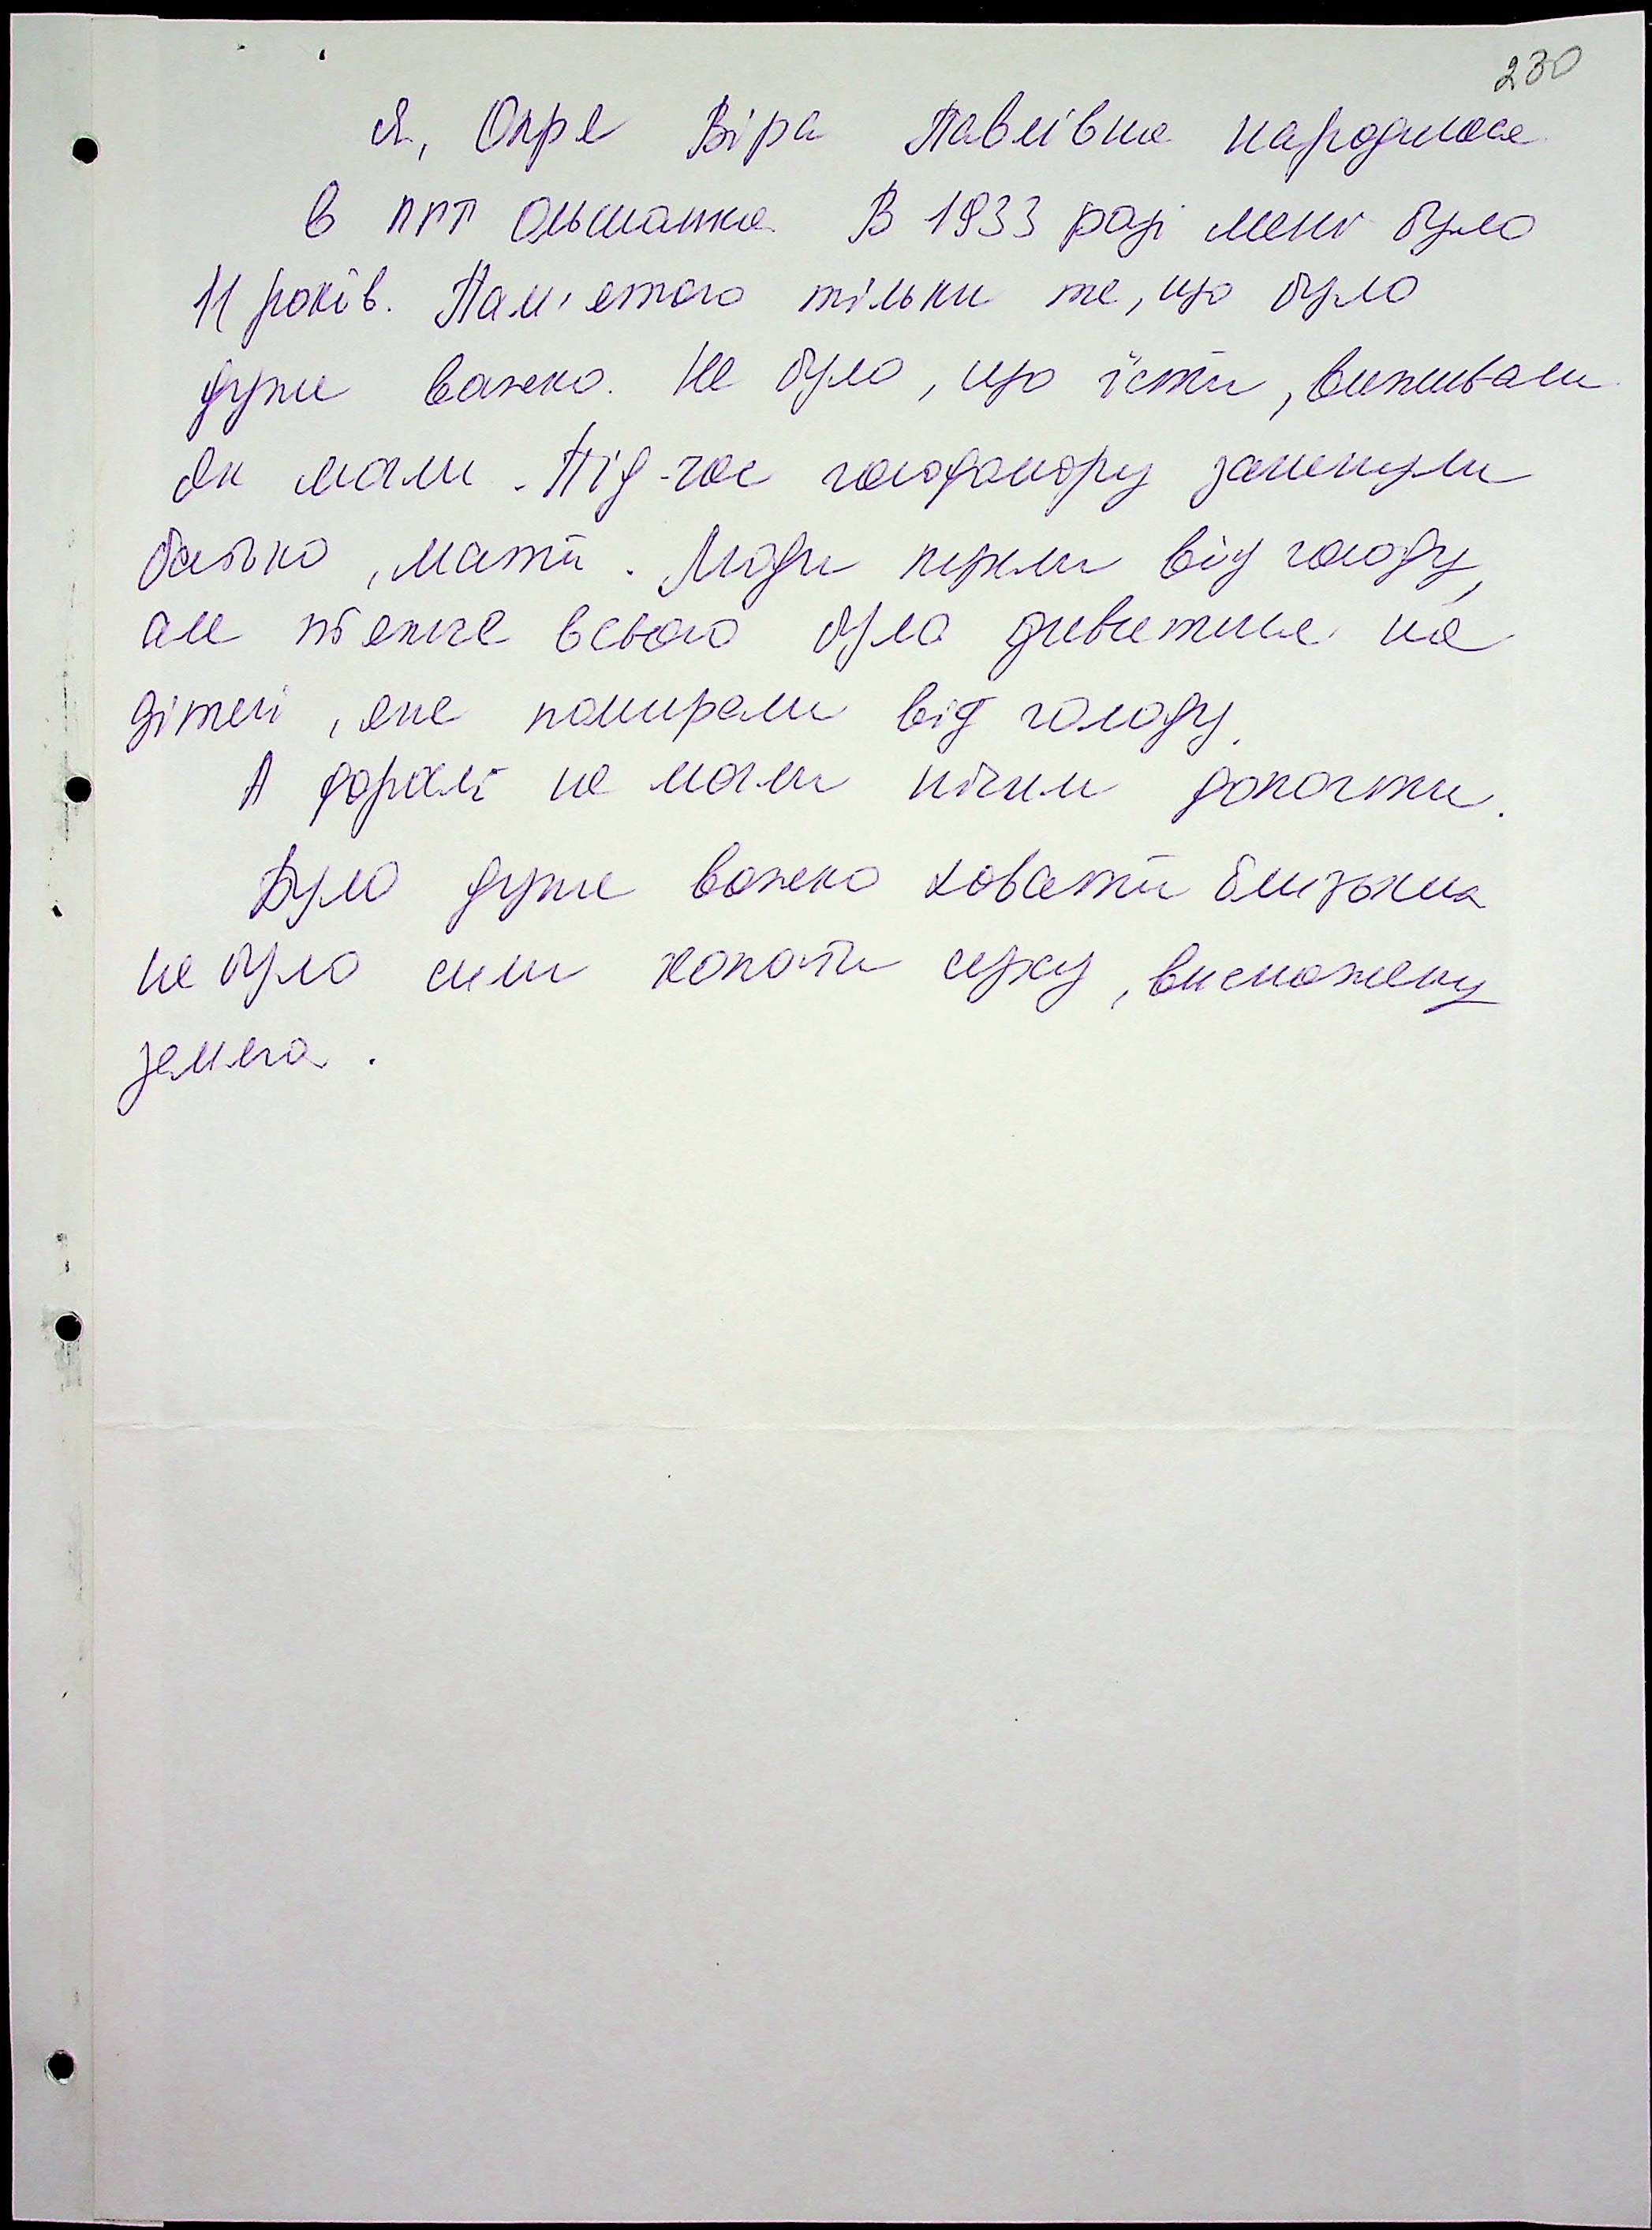 230
Я, Опря Віра Павлівна народилася
в пгт Ольшанка В 1933 році мені було
11 років. Пам'ятаю тільки те, що було
дуже важко. Не було, що їсти, виживали
як могли. Під-час голодомору загинули
батько, мати. Люди пухли від голоду,
але тяжче всього було дивитися на
дітей, яке помирали від голоду.
А дорослі не могли нічим допомогти.
Було дуже важко ховати близьких
не було сили копати суху, виснажену
землю.